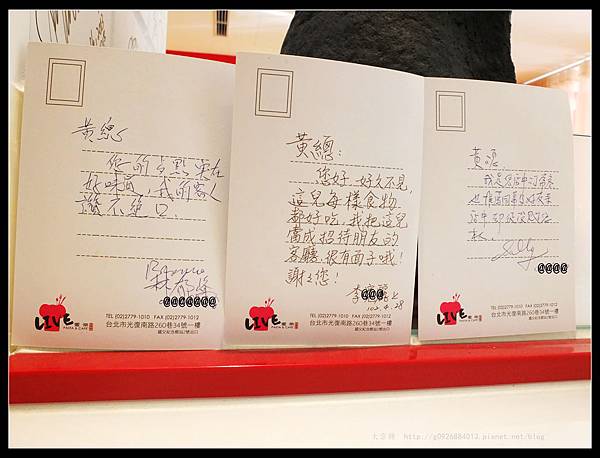 黃總
你的古點實在
好味道,我的客人
讚不絕口.
LIVE
PASTA & CAFE
TEL (02)2779-1010 FAX (02)2779-1012
台北市光復南路260巷34號一樓
國父紀念館站2號出口
黃總:
您好,好久不見,
這兒每樣食物
都好吃,我把這兒
當成招待朋友的
客廳,很有面子哦!
謝謝您!
LIVE
PASTA & CAFE
TEL (02)2779-1010 FAX (02)2779-1012
台北市光復南路260巷34號一樓
國父紀念館站2號出口
黃總.
我是您店中的常客
LIVE
PASTA & CAFE
TEL (02)2779-1010 FAX (02)2779-1012
台北市光復南路260巷34號一樓
國父紀念館站2號出口
http://g0926884013.pixnet.net/blog